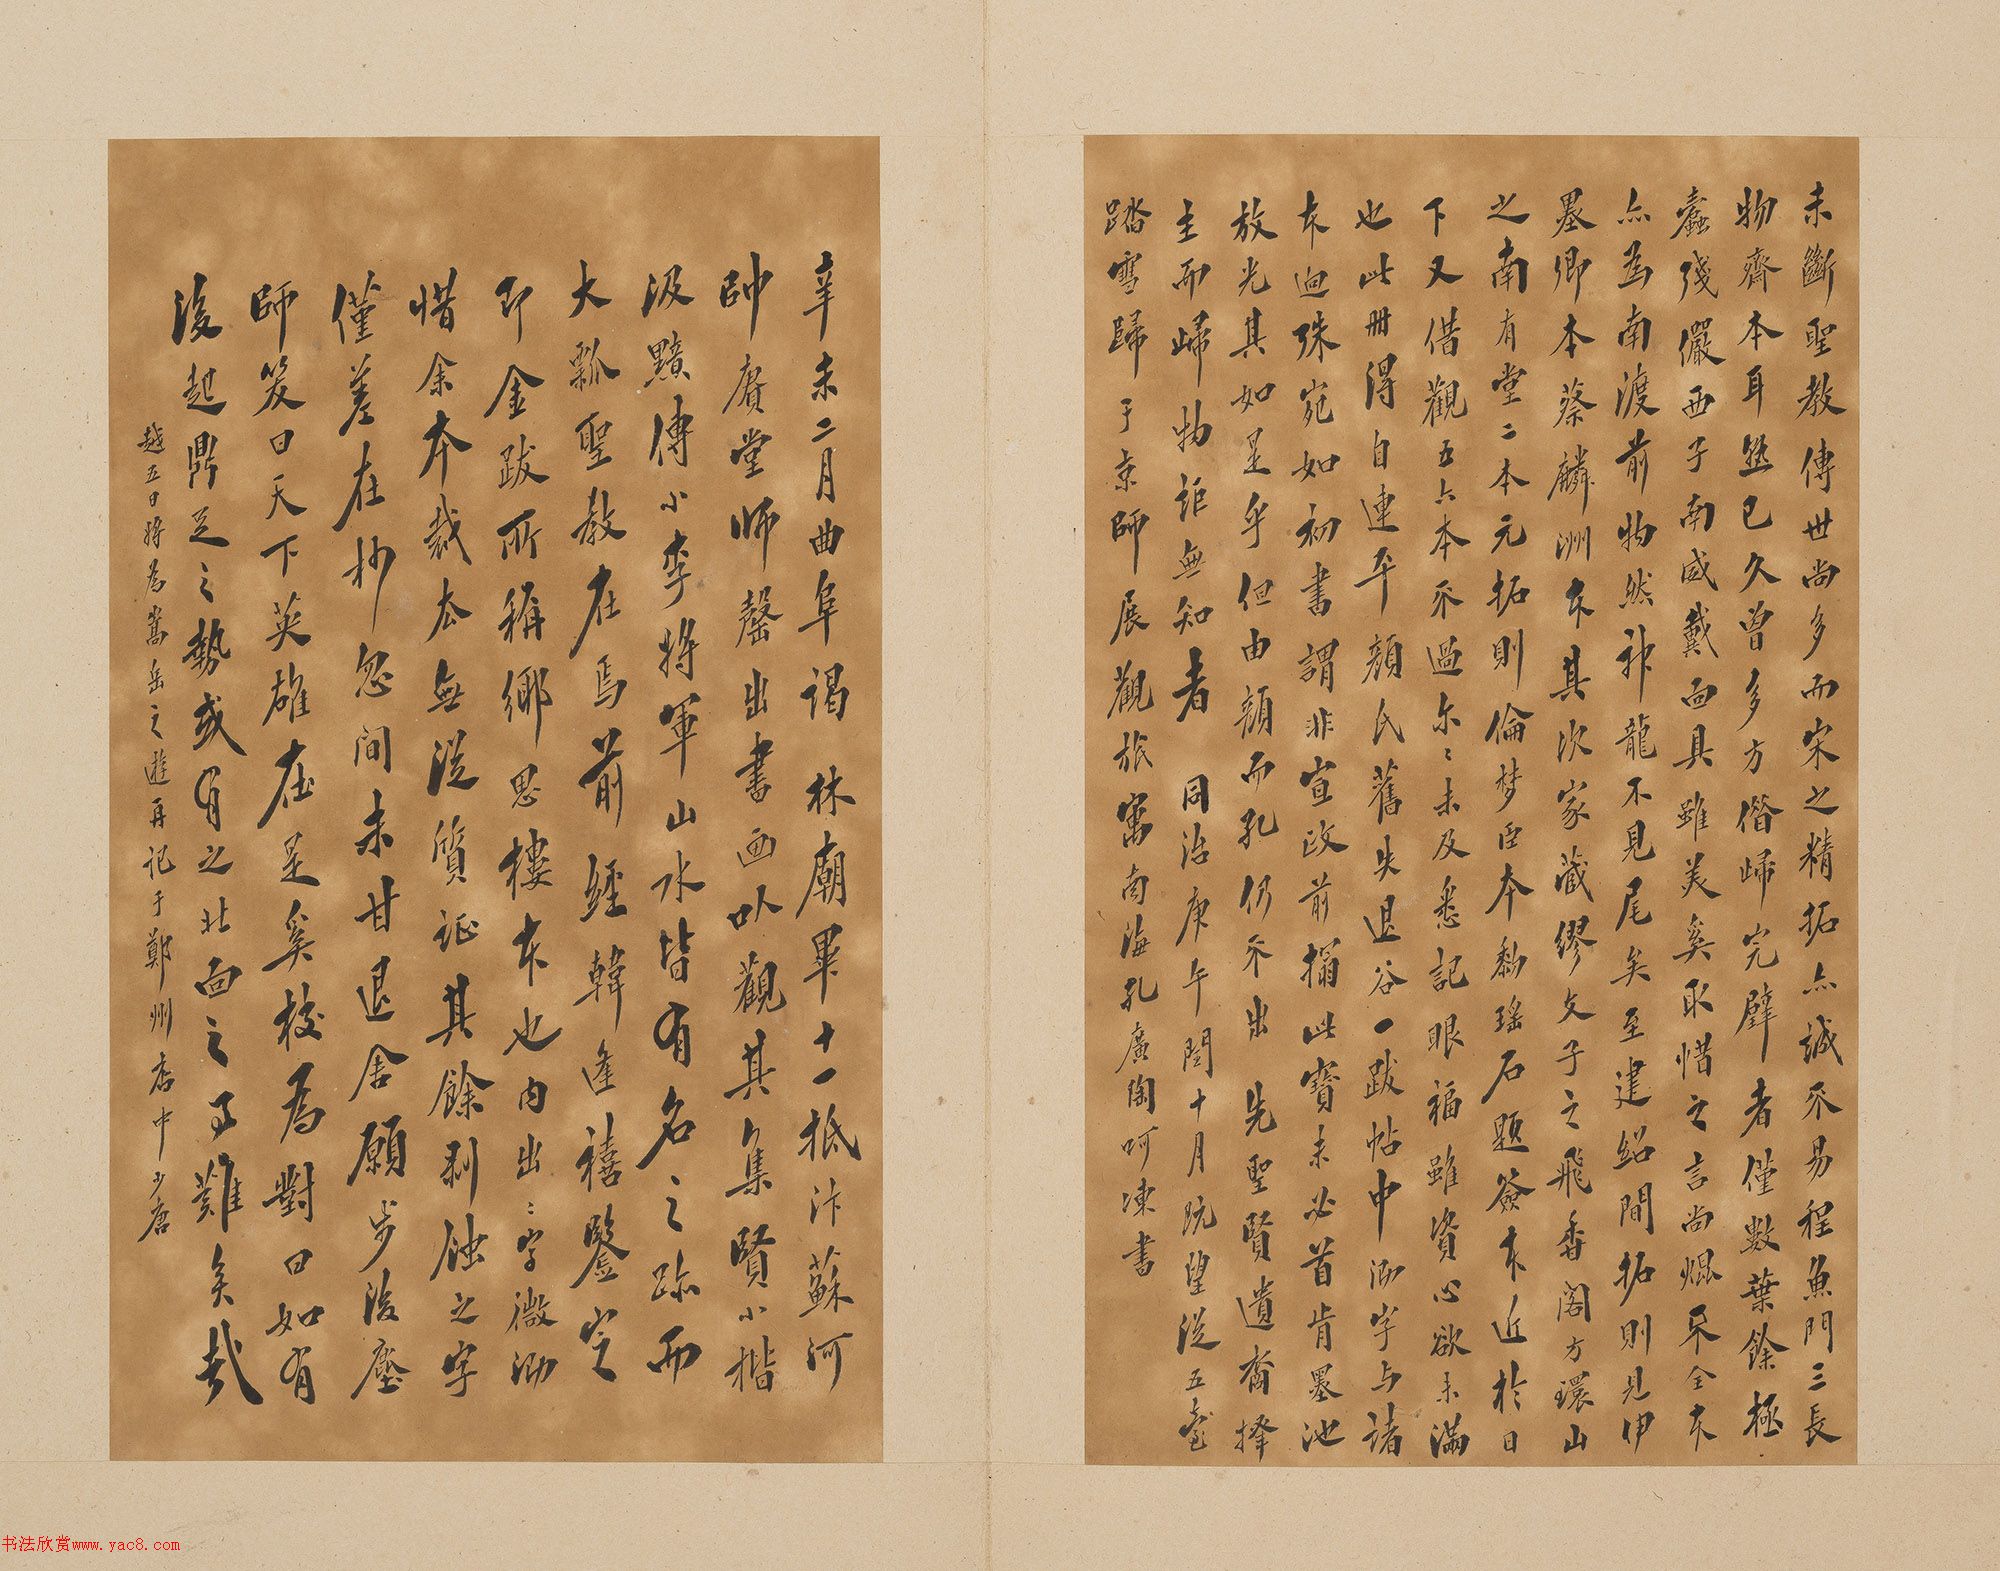 未斷聖教傳世尚多而宋之精拓亦誠不易程魚門三長
物齋本耳熟已久曾多方借歸完璧者僅數葉餘極
蠹殘儼西子南威戴面具雖美奚取惜之言尚焜
亦為南渡前物然神龍不見尾矣至建紹間拓則見伊
墨卿本蔡麟洲本其次家藏繆文子之飛香閣方環山
之南有堂二本元拓則倫夢臣本黝瑤石題簽本近於日
下又借觀五六本不過尔尔未及悉記眼福雖資心欲未滿
也此冊得自連平顏氏舊失退谷一跋帖中泐字与諸
本迥殊宛如初書謂非宣政前搨此寶未必首肯墨池
放光其如是乎但由顏而孔仍不出先聖賢遺裔擇
主而歸物詎無知者同治庚午閏十月既望從五臺
踏雪歸于京師展觀旅寓南海孔廣陶呵凍書
辛未二月曲阜謁林廟畢十一抵汴蘇河
帥賡堂師罄出書画以觀其集賢小楷
汲黯傳小李將軍山水皆有名之跡而
大瓢聖教在焉前經韓逢禧鑒定
即金跋所稱鄉思樓本也內出出字微泐
惜余本裁去無從質証其餘剥蝕之字
僅差在抄忽間未甘退舍願步後塵
師笑曰天下英雄在是奚校為對曰如有
後起鼎足之勢或有之北面之了難矣哉
越五日將為嵩岳之遊再記于鄭州店中少唐
书法欣赏www.yac8.com